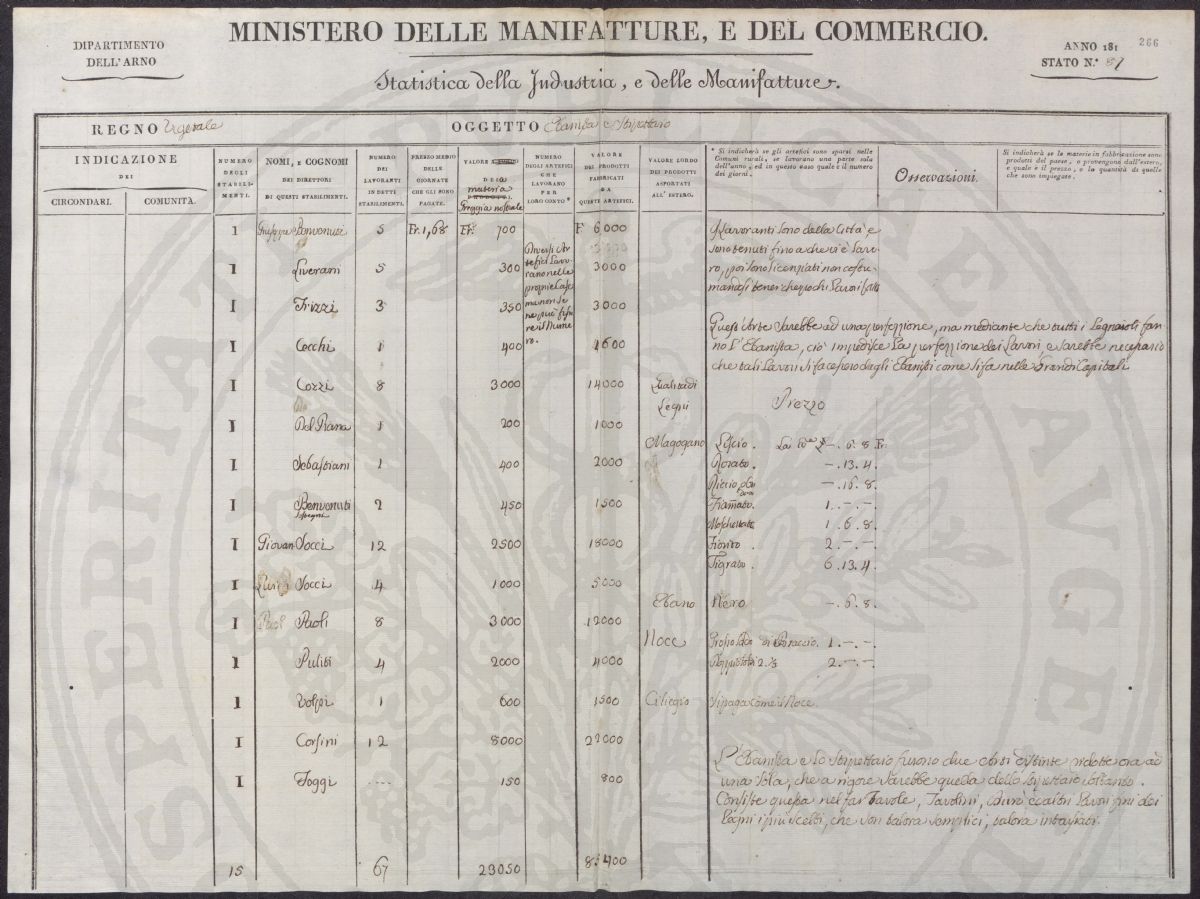 MINISTERO DELLE MANIFATTURE, E DEL COMMERCIO.
DIPARTIMENTO
DELL'ARNO
ANNO 181
266
STATO N.°
Statistica della Industria, e delle Manifatture.
REGNO Vegetale
OGGETTO Ebanista e Stipettaio
INDICAZIONE
DEI
CIRCONDARI.
COMUNITÀ.
NUMERO
DEGLI
STABILI-
MENTI.
NOMI, E COGNOMI
DEI DIRETTORI
DI QUESTI STABILIMENTI.
NUMERO
DEI
LAVORANTI
IN DETTI
STABILIMENTI.
PREZZO MEDIO
DELLE
GIORNATE
CHE GLI SONO
PAGATE.
VALORE
DELLA
materia
PRODOTTI.
Greggia nostrale
NUMERO
DEGLI ARTEFICI
CHE
LAVORANO
PER
LORO CONTO*
VALORE
DEI PRODOTTI
FABBRICATI
DA
QUESTI ARTEFICI.
VALORE LORDO
DEI PRODOTTI
ASPORTATI
ALL'ESTERO.
* Si indicherà se gli artefici sono sparsi nelle
Comuni rurale, se lavorano una parte sola
dell'anno, ed in questo caso quale è il numero
dei giorni.
Osservazioni.
Si indicherà se le materie in fabbricazione sono
prodotti del paese, o provengono dall'estero,
e quale è il prezzo, e la quantità di quelle
che sono impiegate.
1 Giuseppe Benvenuti 5 Fr. 1,68 Fr. 700 F 6000
1 Liverani 5 300 3000
1 Frizzi 3 350 3000
1 Cecchi 1 400 1600
1 Cozzi 8 3000 14000
1 Del Piana 1 200 1000
1 Sebastiani 1 400 2000
1 Benvenuti 2 450 1500
1 Giovan Socci 12 2500 18000
1 Luigi Socci 4 1000 5000
1 Paoli 8 3000 12000
1 Puliti 4 2000 4000
1 Volpi 1 600 1500
1 Corsini 12 8000 22000
1 Foggi .... 150 800
15 67 23050
Diversi Ar-
tefici Lavo-
rano nelle
proprie Case
ma non se
ne può fissa-
re il Nume-
ro.
I Lavoranti sono della Città e
sono tenuti fino a che vi è Lavo-
ro, poi sono licenziati non costu-
mandosi tener che pochi Lavori fatti
Quest'Arte sarebbe ad una perfezzione, ma mediante che tutti i Legnaioli fan-
no l'Ebanista, ciò impedisce la perfezzione dei Lavori e sarebbe necessario
che tali Lavori si facessero dagli Ebanisti come si fa nelle Grandi Capitali
Qualità di
Legni
Prezzo
Magogano Liscio. La -. 6. 8
-. 13. 4.
-. 16. 8.
Fiammato. 1. -. -.
1. 6. 8.
Fiorito. 2. -. -.
Tigrato. 6. 13. 4.
Ebano Nero -. 6. 8.
Noce di Braccio. 1. -. -.
2. -. -.
Ciliegio Si paga come il Noce.
L'Ebanista e lo Stipettaio furono due Arti distinte ridotte ora ad
una sola, che a rigore sarebbe quella dello Stipettaio soltanto.
Consiste questa nel far Tavole, Tavolini, ed altri Lavori fini dei
Legni i più scelti, che son talora semplici, talora intarsiati.